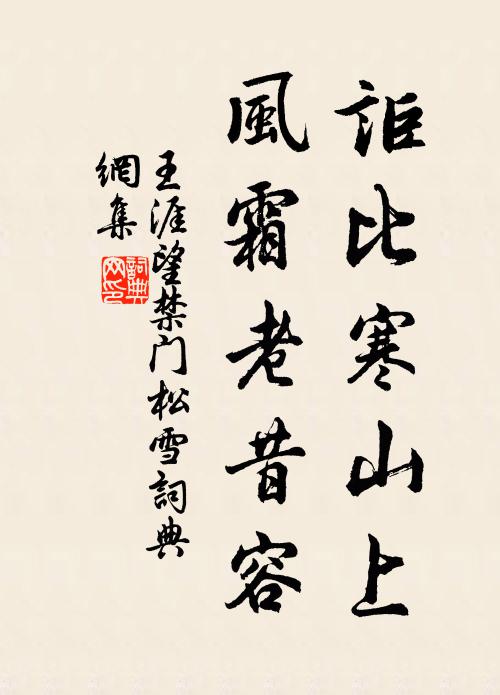 詎比寒山上
風霜老昔容
王涯望禁门松雪詞典
網集
詞典网印